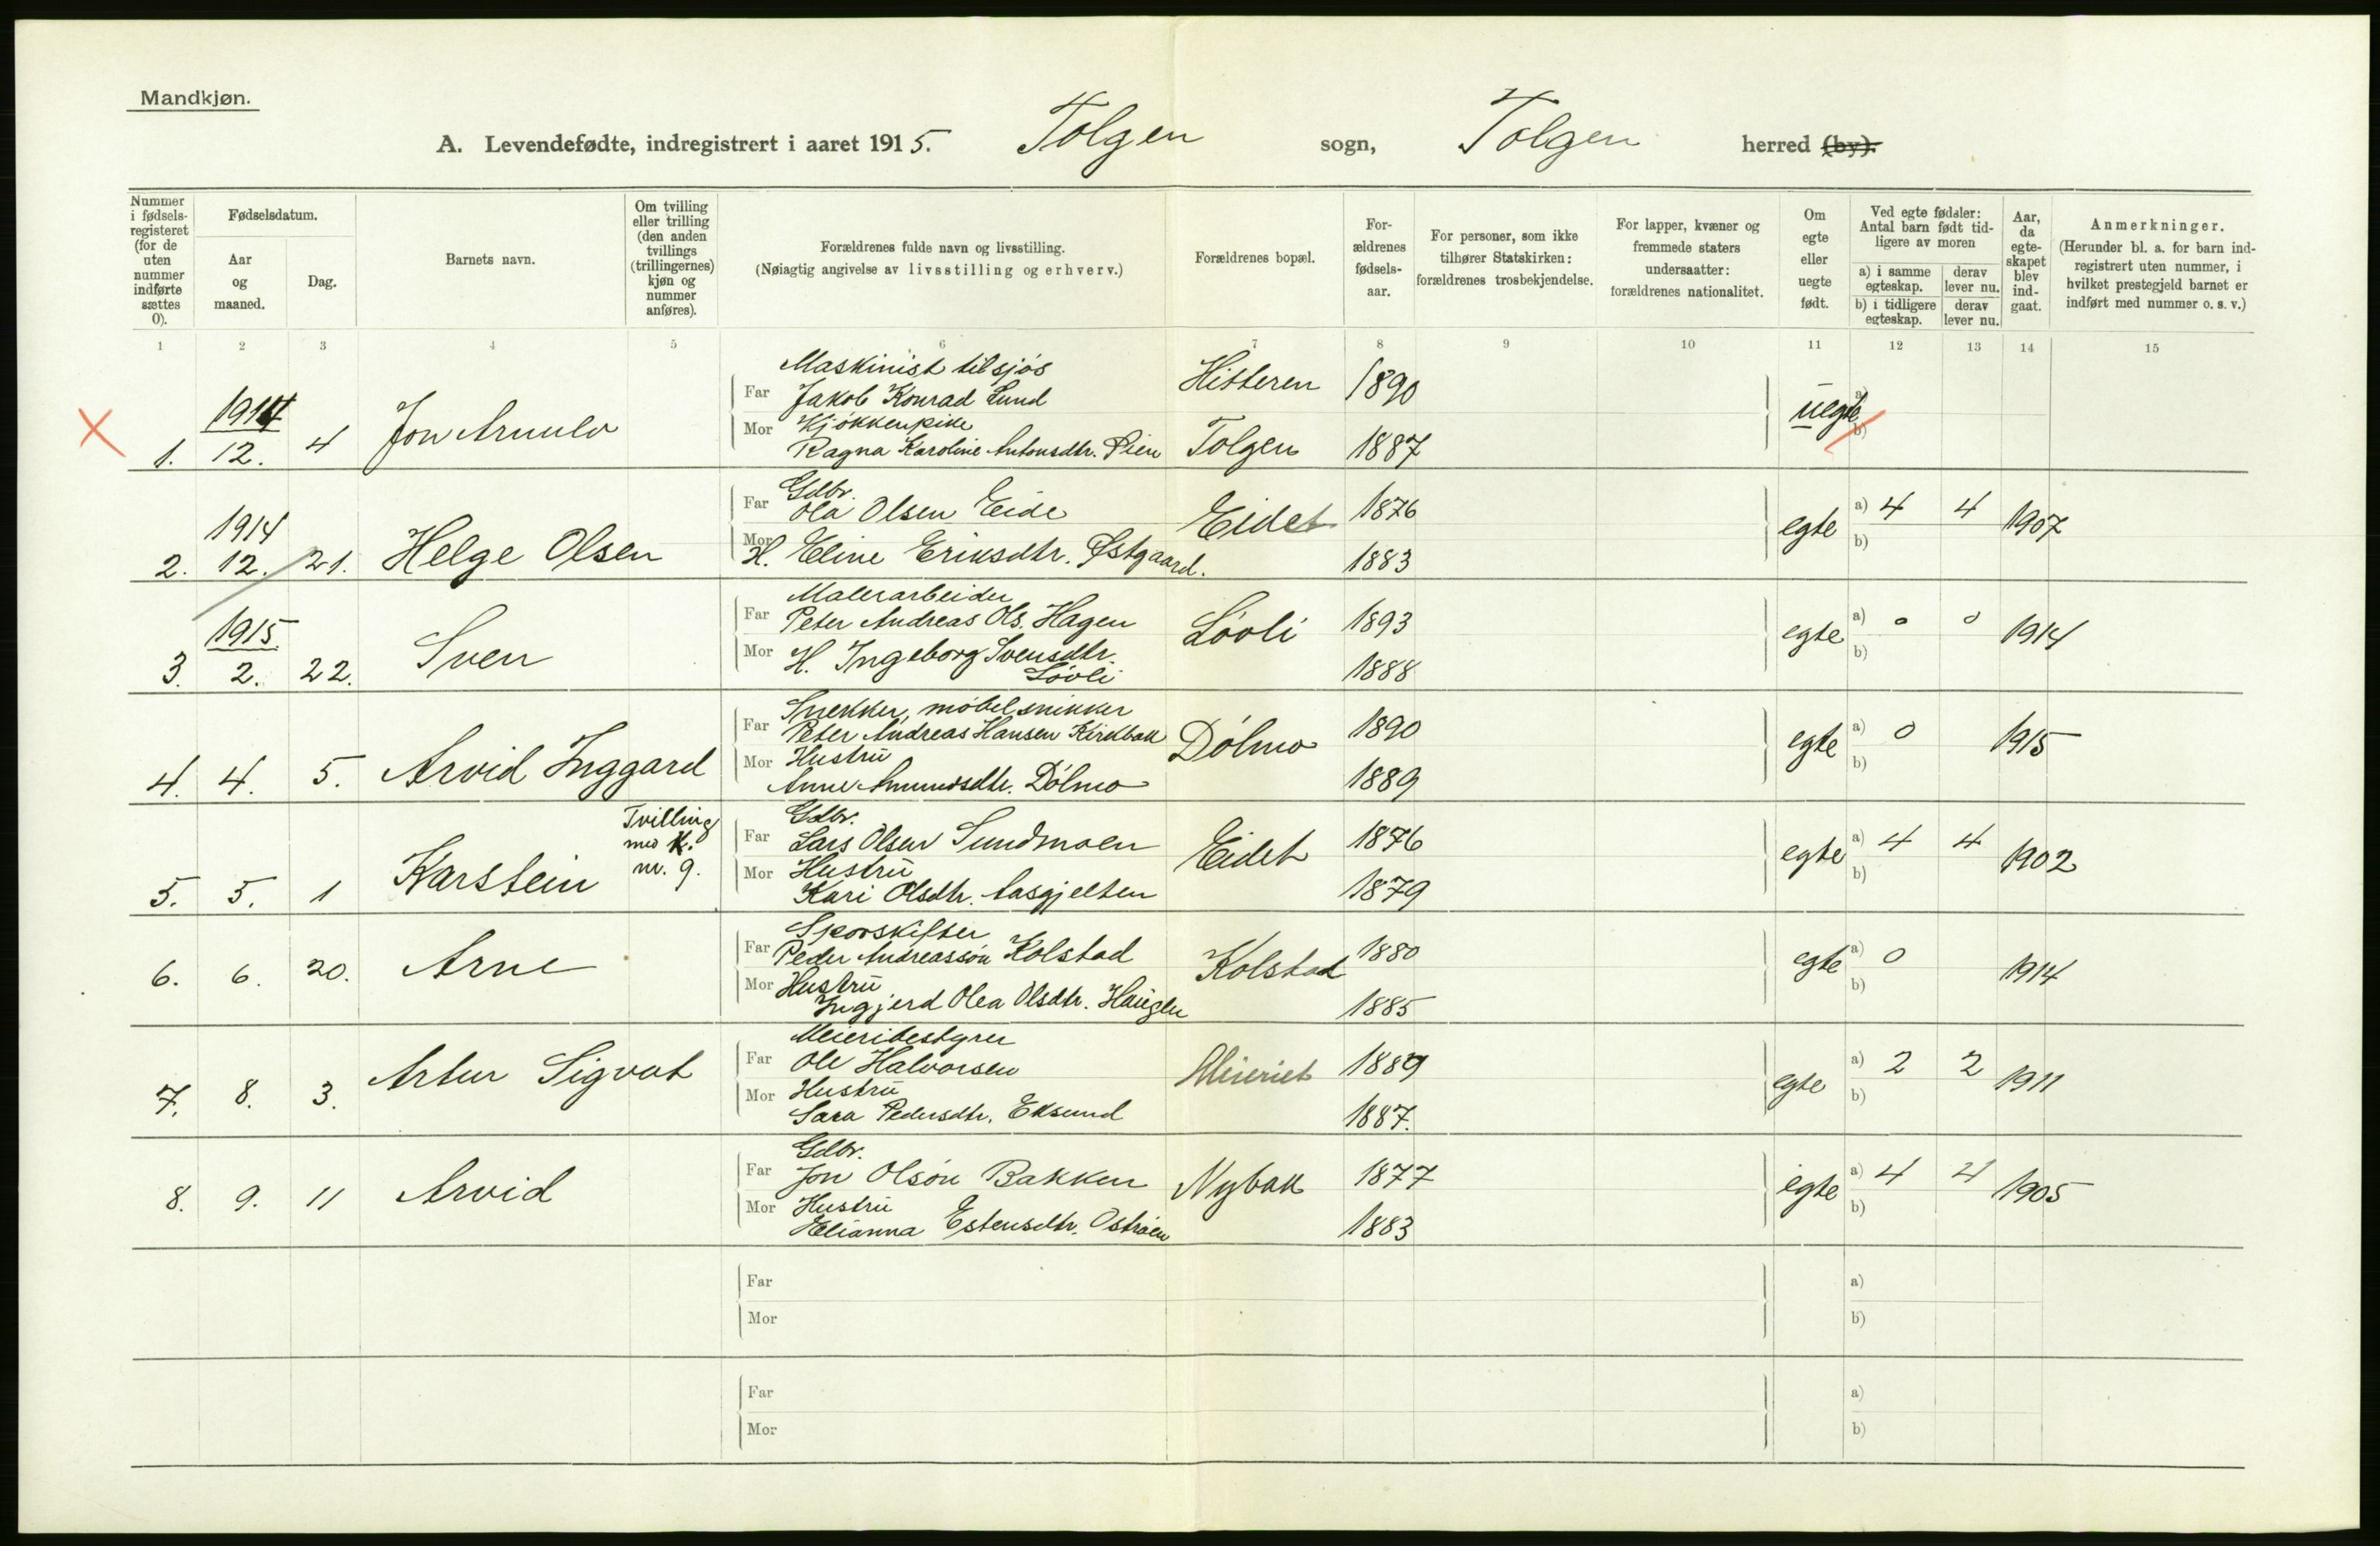 Mandkjøn.
A. Levendefødte, indregistrert i aaret 1915. Tolgen sogn, Tolgen herred (by).
Nummer i fødsels-registeret (for de uten nummer indførte sættes 0).
Fødselsdatum.
Aar og maaned.
Dag.
Barnets navn.
Om tvilling eller trilling (den anden tvillings (trillingernes) kjøn og nummer anføres).
Forældrenes fulde navn og livsstilling.
(Nøiagtig angivelse av livsstilling og erhverv.)
Forældrenes bopæl.
For-ældrenes fødsels-aar.
For personer, som ikke tilhører Statskirken: forældrenes trosbekjendelse.
For lapper, kvæner og fremmede staters undersaatter: forældrenes nationalitet.
Om egte eller uegte født.
Ved egte fødsler: Antal barn født tid-ligere av moren
a) i samme egteskap.
derav lever nu.
b) i tidligere egteskap.
derav lever nu.
Aar, da egte-skapet blev ind-gaat.
Anmerkninger.
(Herunder bl. a. for barn ind-registrert uten nummer, i hvilket prestegjeld barnet er indført med nummer o. s. v.)
1 2 3 4 5 6 7 8 9 10 11 12 13 14 15
Maskinist tilsjøs
1914 Far Jakob Konrad Lund Hitteren 1890 uegte a)
Mor Kjøkkenpike b)
1. 12. 4 Jon Arnulv Ragna Karoline Antonsdtr. Øien Tolgen 1887
Gdbr.
1914 Far Ola Olsen Eide Eidet 1876 egte a) 4 4 1907
2. 12. 21. Helge Olsen Mor H. Eline Eriksdtr. Østgaard. 1883 b)
Malerarbeider
1915 Far Peter Andreas Ols. Hagen Løvli 1893 egte a) 0 0 1914
3. 2. 22. Sven Mor H. Ingeborg Svensdtr. 1888 b)
Løvli
Snekker, møbelsnikker
Far Peter Andreas Hansen Kirkbak Dølmo 1890 egte a) 0 1915
Mor Hustru b)
4. 4. 5. Arvid Inggard Anne Amundsdtr. Dølmo 1889
Tvilling Gdbr.
med K. Far Lars Olsen Sundmoen Eidet 1876 egte a) 4 4 1902
nr. 9. Mor Hustru b)
5. 5. 1 Karstein Kari Olsdtr. Aasgjelten 1879
Sporskifter
Far Peder Andreassøn Kolstad Kolstad 1880 egte a) 0 1914
6. 6. 20. Arne Mor Hustru b)
Ingjerd Olea Olsdtr. Haugen 1885
Meieribestyrer
Far Ole Halvorsen Meieriet 1889 egte a) 2 2 1911
7. 8. 3. Artur Sigvat Mor Hustru b)
Sara Pedersdtr. Eksund 1887.
Gdbr.
Far Jon Olsøn Bakken Nybak 1877 egte a) 4 4 1905
8. 9. 11 Arvid Mor Hustru b)
Elianna Estensdtr. Østrøen 1883
Far a)
Mor b)
Far a)
Mor b)